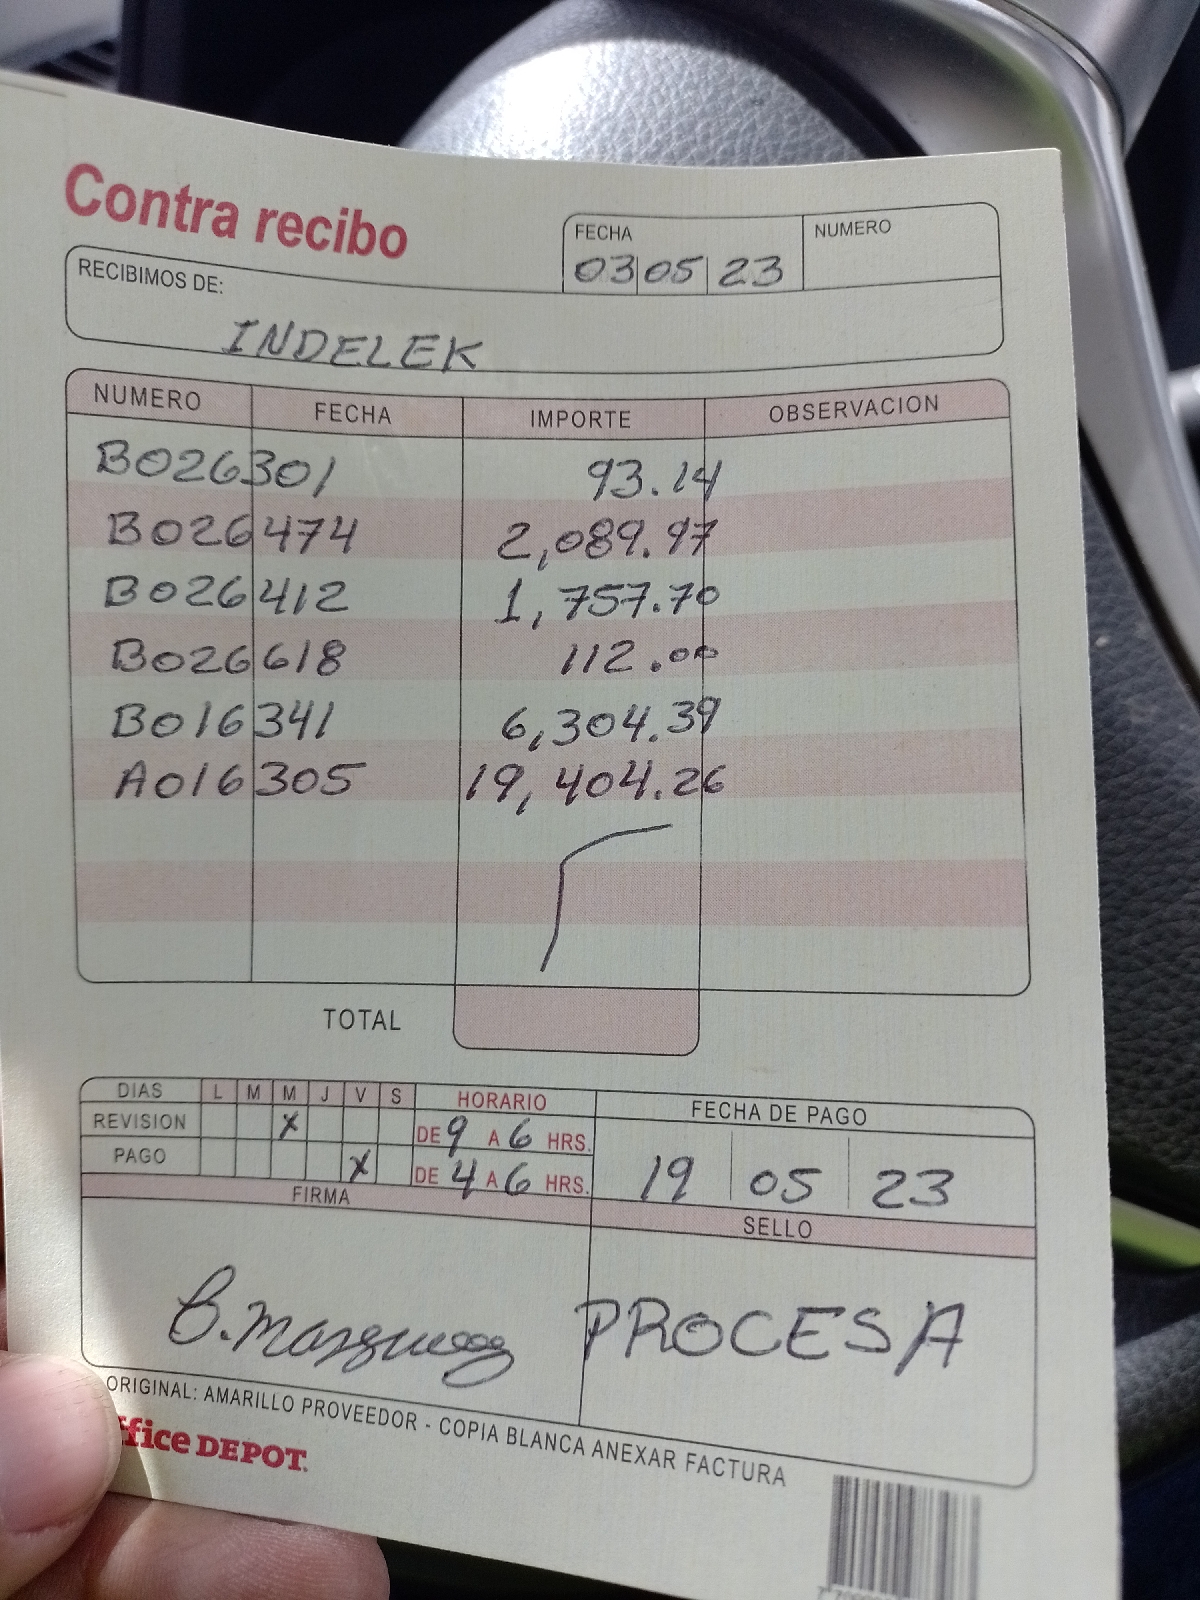 Contra recibo
FECHA NUMERO
03 05 23
RECIBIMOS DE:
INDELEK
NUMERO FECHA IMPORTE OBSERVACION
B026301 93.14
B026474 2,089.97
B026412 1,757.70
B026618 112.00
B016341 6,304.39
A016305 19,404.26
TOTAL
DIAS L M M J V S HORARIO FECHA DE PAGO
REVISION X DE 9 A 6 HRS.
PAGO X DE 4 A 6 HRS. 19 05 23
FIRMA SELLO
B. Marquez PROCESA
ORIGINAL: AMARILLO PROVEEDOR - COPIA BLANCA ANEXAR FACTURA
ffice DEPOT.